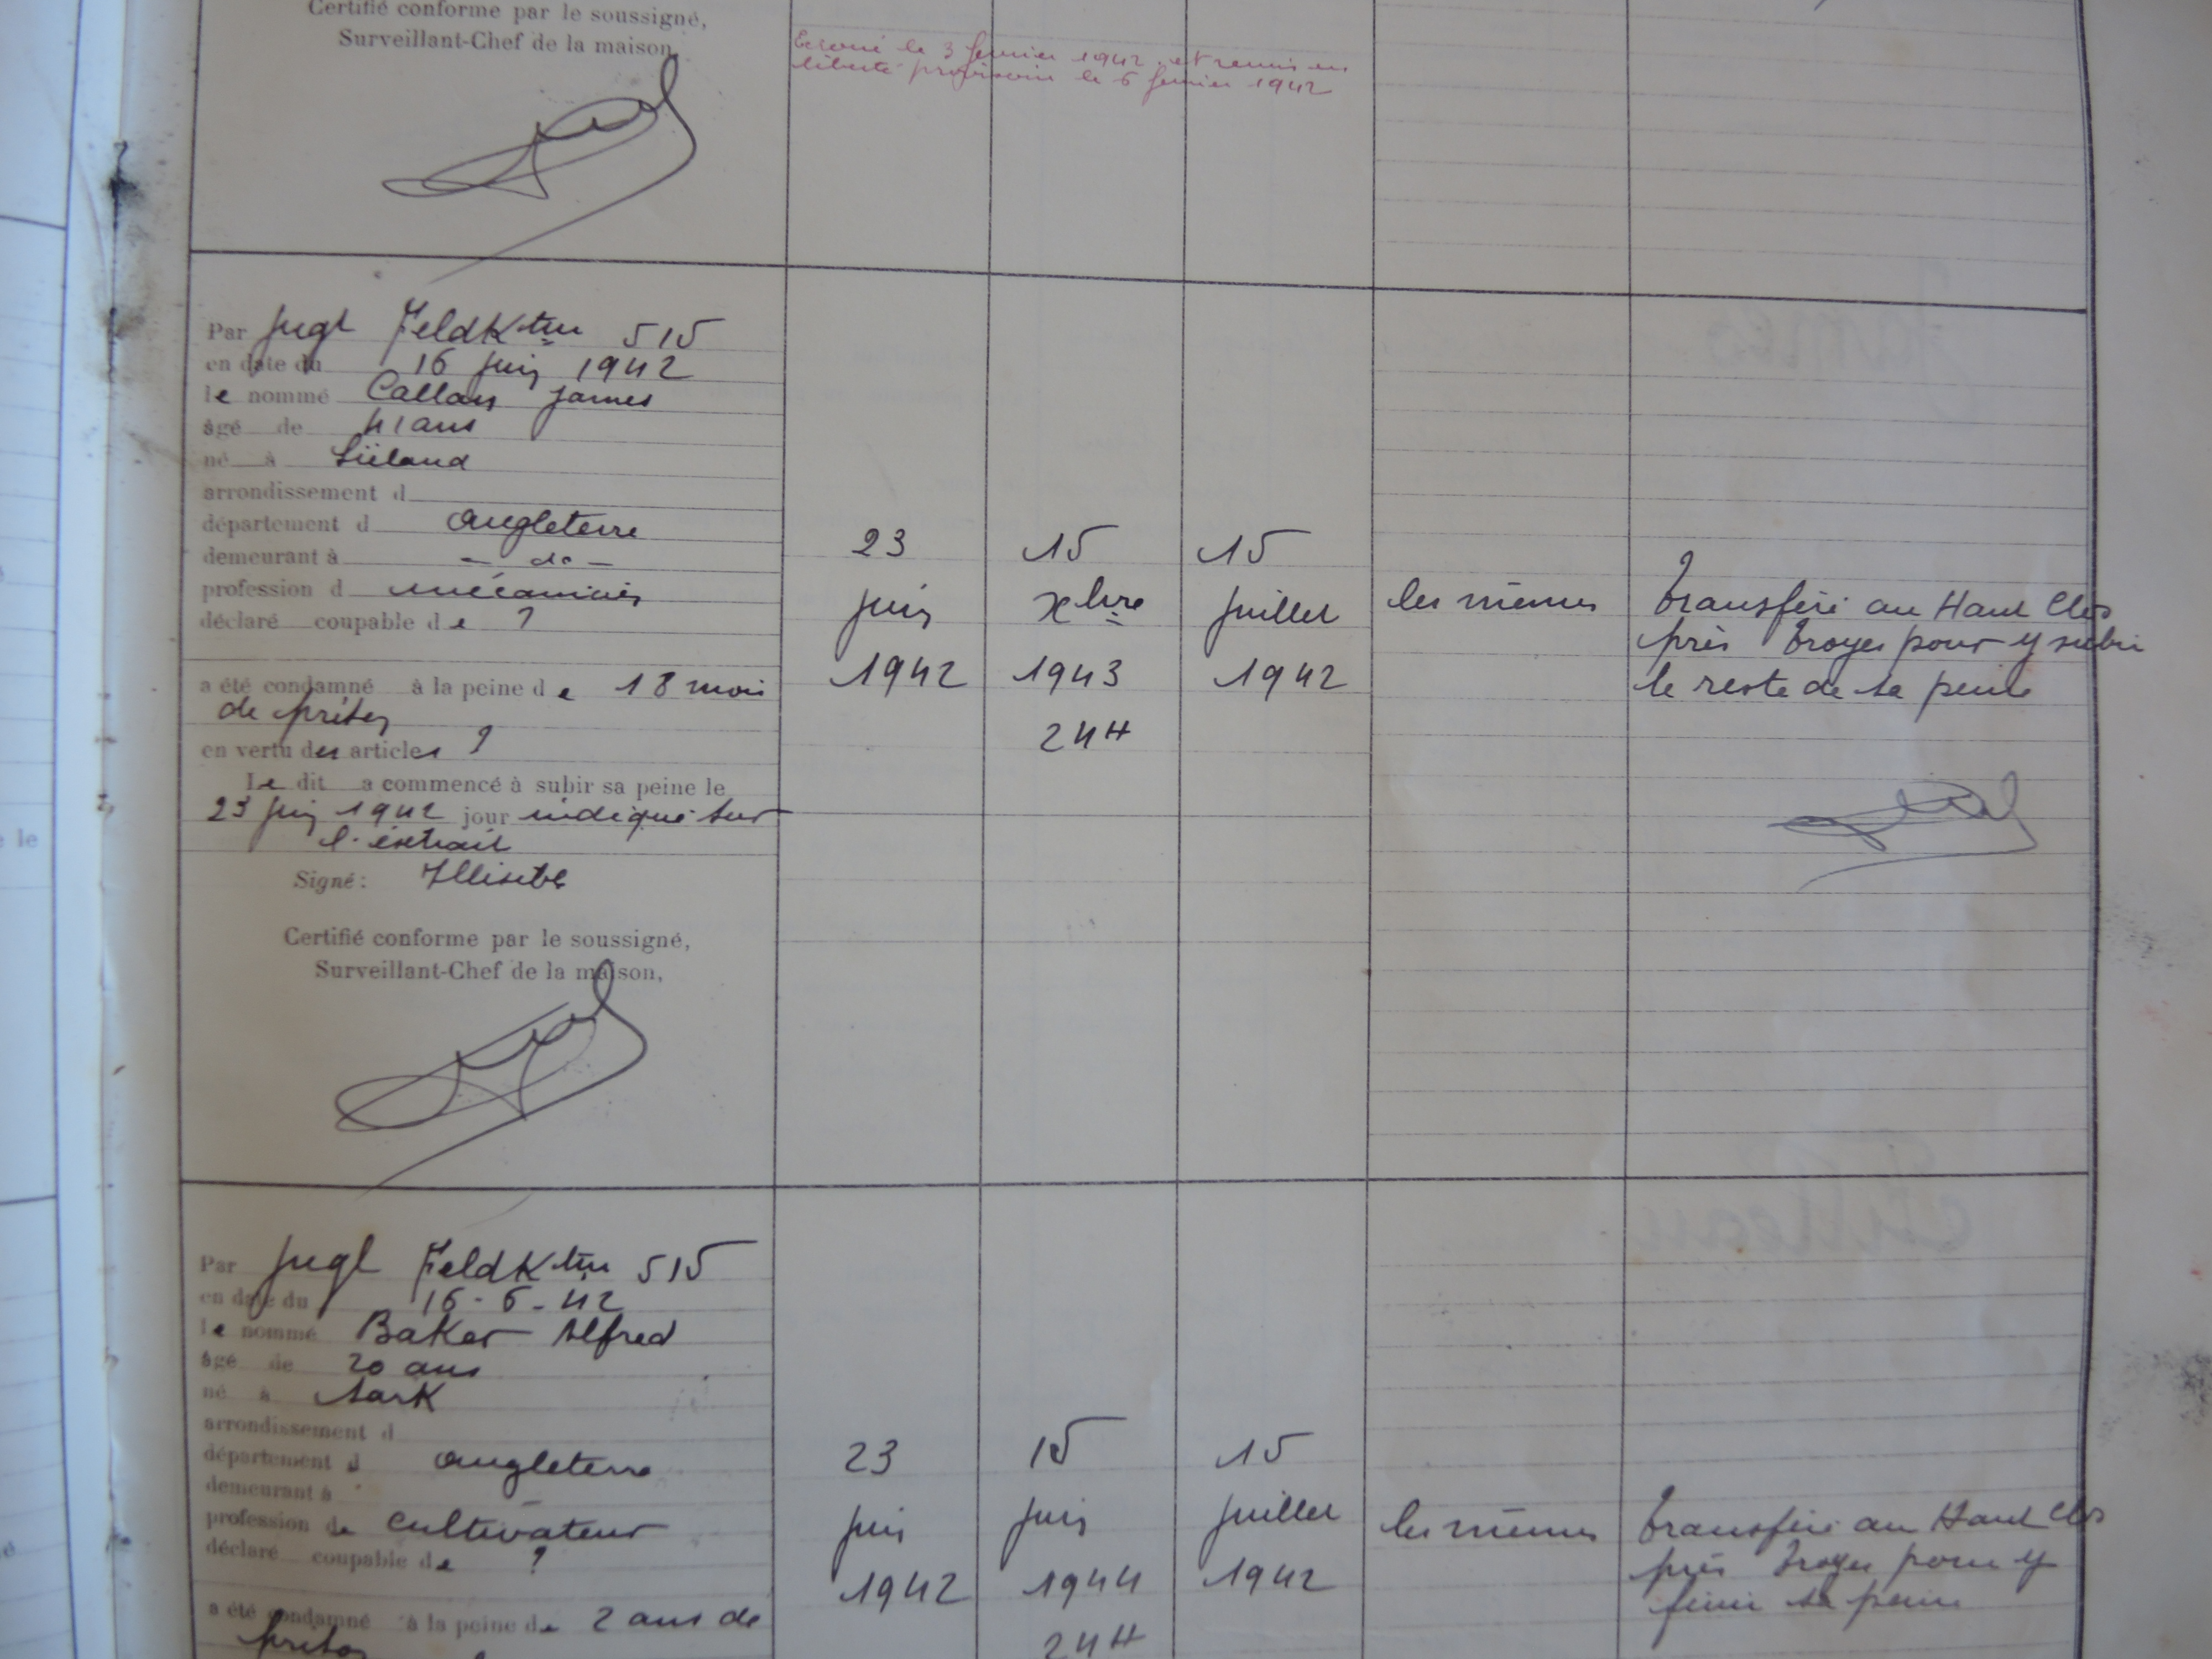 Certifié conforme par le soussigné,
Surveillant-Chef de la maison,
Ecroué le 3 fevrier 1942 et remis en
liberté provisoire le 6 fevrier 1942
Par Jugt FeldKtur 515
en date du 16 juin 1942
le nommé Callan James
âgé de 41 ans
né à
arrondissement d
département d Angleterre
demeurant à - do -
profession d mécanicien
déclaré coupable de ?
a été condamné à la peine de 18 mois
de prison
en vertu des articles ?
Le dit a commencé à subir sa peine le
23 juin 1942 jour indiqué sur
l'extrait
Signé : Illisible
Certifié conforme par le soussigné,
Surveillant-Chef de la maison,
23
juin
1942
15
xbre
1943
24H
15
juillet
1942
les mêmes
Transféré au Haut Clos
près Troyes pour y subir
le reste de sa peine
Par Jugt FeldKtur 515
en date du 16-6-42
le nommé Baker Alfred
âgé de 20 ans
né à Sark
arrondissement d
département d Angleterre
demeurant à
profession de cultivateur
déclaré coupable de ?
a été condamné à la peine de 2 ans de
prison
23
juin
1942
15
juin
1944
24H
15
juillet
1942
les mêmes
Transféré au Haut Clos
près Troyes pour y
finir sa peine